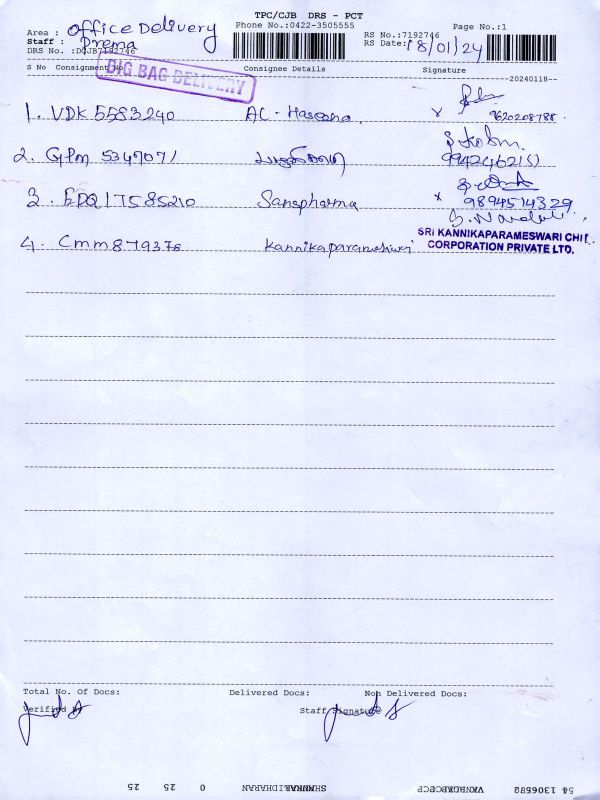 TPC/CJB DRS - PCT
Phone No.:0422-3505555
Page No.:1
Area : Office Delivery
Staff : Prema
RS No.:7192746
RS Date: 18/01/24
DRS No. :DCJB7192746
BIG BAG DELIVERY
S No Consignment No Consignee Details Signature
20240118--
1. VDK 5583240 AC - Haseena x 9620208788
2. GPM 5347071
3. EPQ17585210 Sanspharma x 9894514329
4. Cmm879376 Kannikaparameshwari
SRI KANNIKAPARAMESWARI CHIT
CORPORATION PRIVATE LTD.
Total No. Of Docs: Delivered Docs: Non Delivered Docs:
Verified By Staff Signature
25 25 0